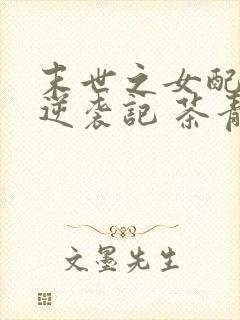 末世之女配
逆袭記 茶青
文墨先生